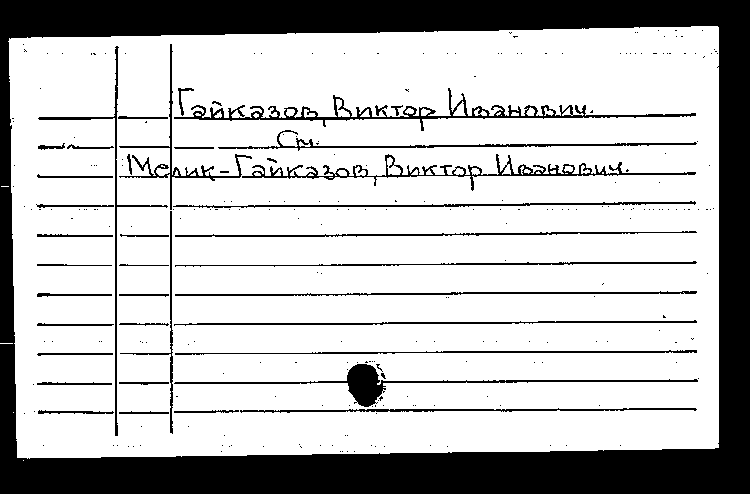 Гайказов, Виктор Иванович.
См.
Мелик-Гайказов, Виктор Иванович.